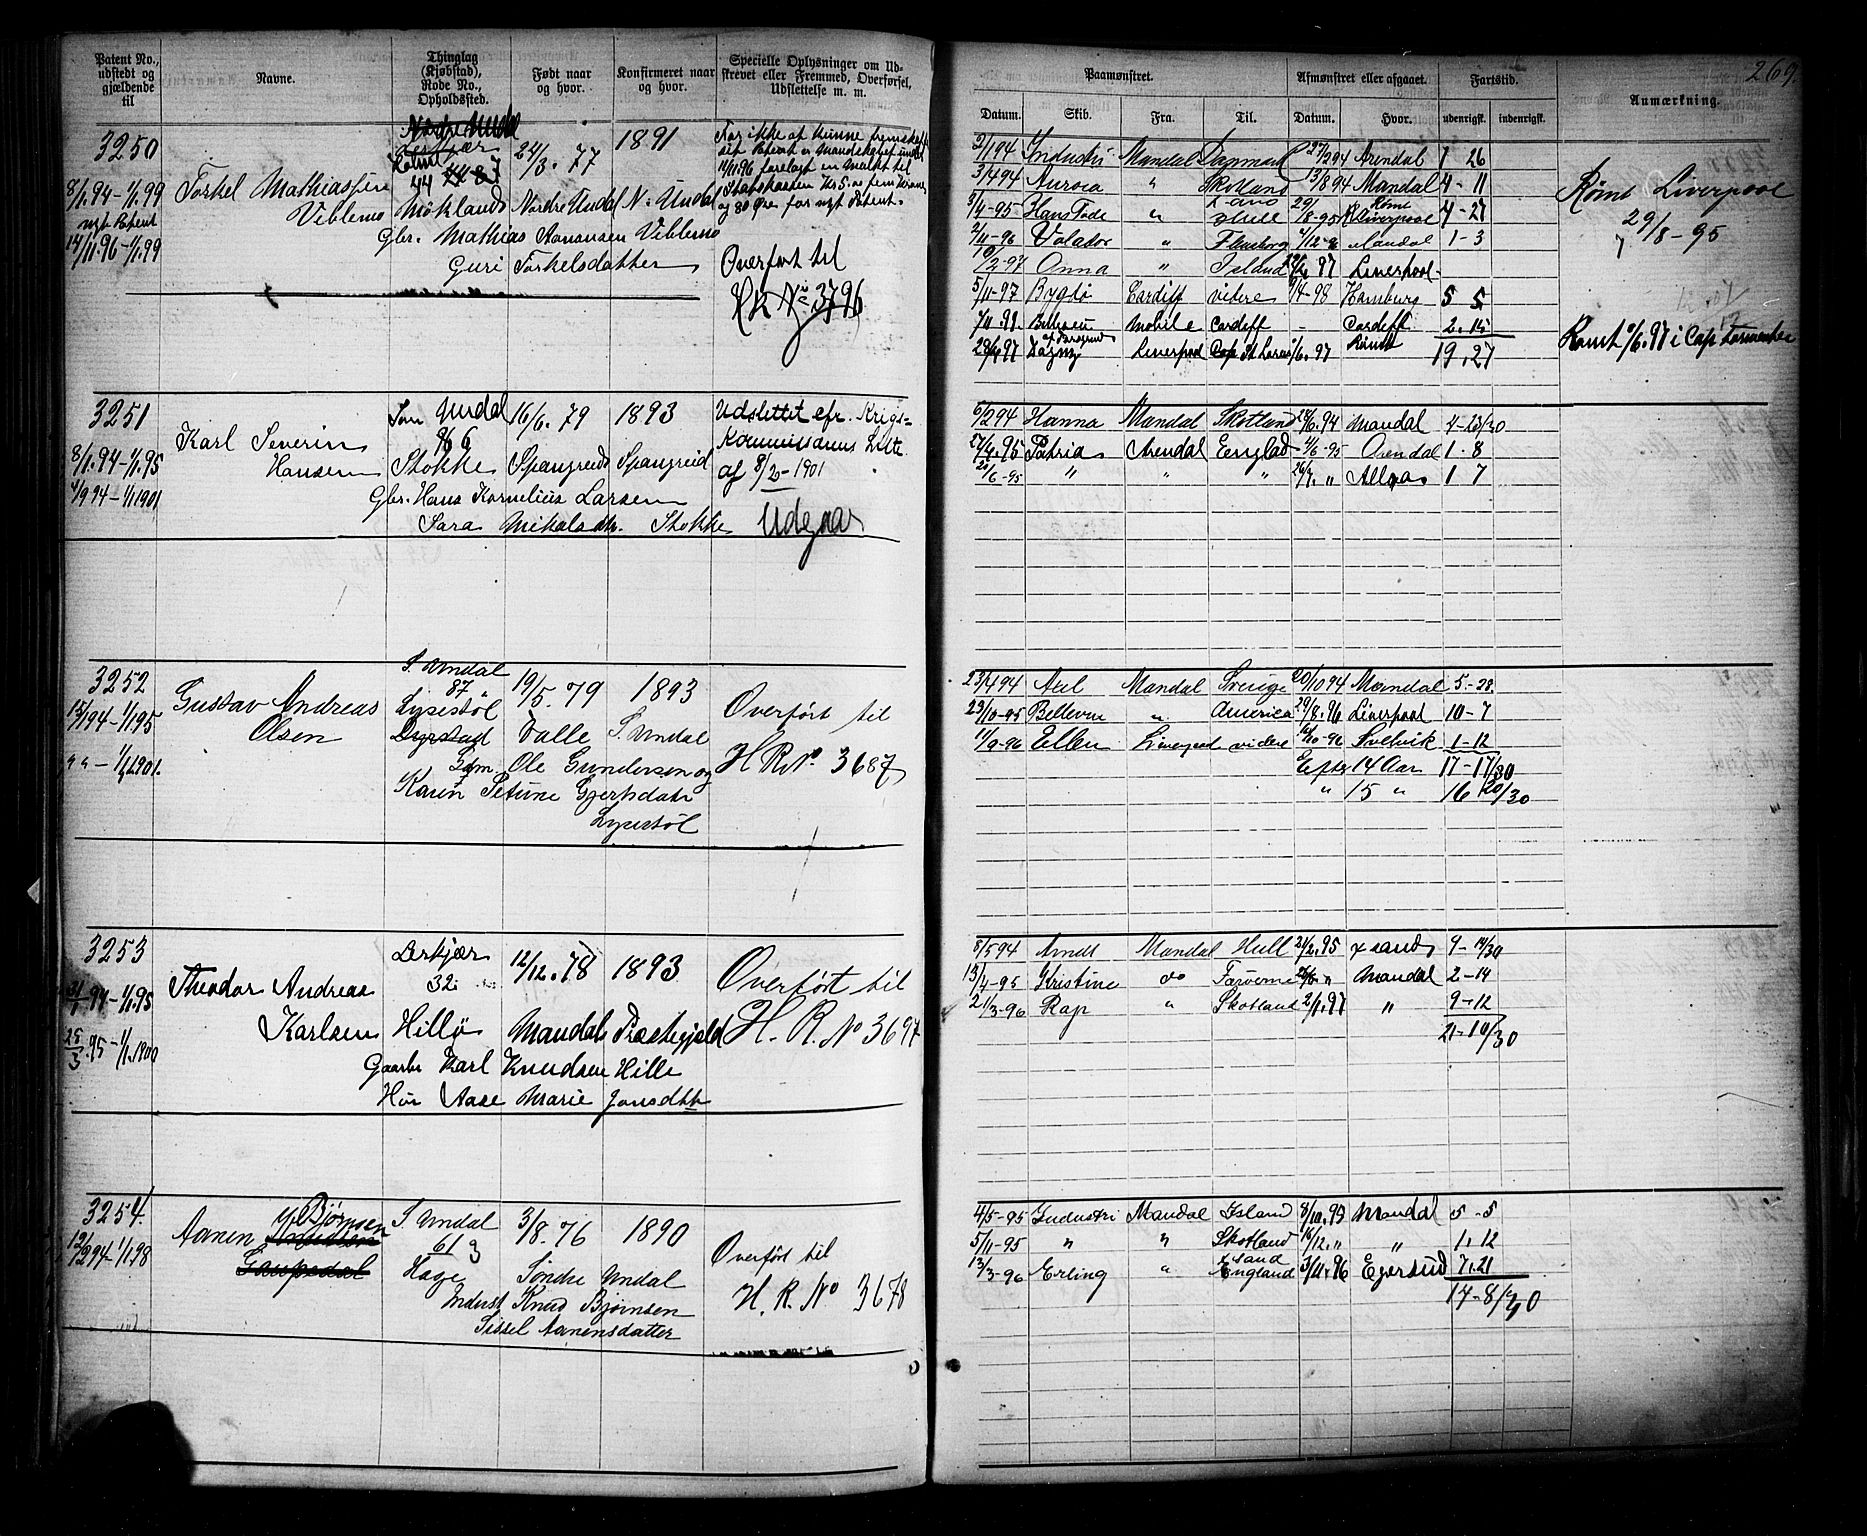 269.
Patent No., udstedt og gjældende til
Navne.
Thinglag (Kjøbstad), Rode No., Opholdssted.
Født naar og hvor.
Konfirmeret naar og hvor.
Specielle Oplysninger om Udskrevet eller Fremmed, Overførsel, Udslettelse m. m.
Paamønstret.
Afmønstret eller afgaaet.
Fartstid.
Anmærkning.
Datum. Skib. Fra. Til. Datum. Hvor. udenrigsk. indenrigsk.
3250
8/1.94-1/1.99
nyt Patent
14/11.96-1/1.99
Torkel Mathiassen
Viblemo
Holme
44
Møklands
24/3. 77
Nordre Undal
1891
N. Undal
Gbr. Mathias Aanansen Viblemo
Guri Torkelsdatter
For ikke at kunne fremskaffe
sit Patent
Statskassen Kr 5.80 fem Kroner
og 80 Øre for nyt Patent.
Overført til
HR No 3796
2/1 94 Industri Mandal Danmark 27/2 94 Arendal 1 26
3/4 94 Aurora " Skotland 13/8 94 Mandal 4 - 11
3/4-95 Hans Tode " Hull 29/8-95 Rømt Liverpool 4 - 27
2/11-96 Valador " Flensborg Mandal 1-3
10/2-97 Onna " Island Liverpool
5/11-97 Bygdø Cardiff videre 9/4-98 Hamburg 5 5
Mobile Cardiff - Cardiff 2. 15
Dagny Liverpool 1/6.97 Rømt 19.27
Rømt Liverpool
29/8-95
Rømt 1/6.97 i Cap Tormentine
3251
8/1.94-1/1.95
4/9 94-1/1 1901
Karl Severin
Hansen
Søn Undal
86 6
Stokke
16/6. 79
Spangreid
1893
Spangreid
Gbr. Hans Kornelius Larsen
Sara Mikalsdtr. Stokke
Udslettet efr. Krigs-
Kommissærens Liste
af 8/2-1901
Udegaar
6/2 94 Hanna Mandal Skotland 28/6.94 Mandal 4-23/30
27/4.95 Patria Arendal England 4/6-95 Arendal 1-8
20/6-95 " " " 26/7. " Alloa 1 7
3252
15/1 94-1/1 95
" " - 1/1 1901.
Gustav Andreas
Olsen
S. Undal
87
Lysestöl
Dyrstad
19/5. 79
Valle S. Undal
1893
Gdm Ole Gundersen og
Karen Petrine Gjertsdatr
Lysestöl
Overført til
H R No. 3687
23/4 94 Axel Mandal Sverige 20/10 94 Mandal 5-28
23/10-95 Bellevue " America 29/8.96 Liverpool 10-7
11/9-96 Ellen Liverpool videre 10-96 Svelvik 1-12
Efter 14 Aar 17-17/30
" 15 " 16 20/30
3253
31/1 94-1/1.95
25/3.95-1/1.1900
Theodor Andreas
Karlsen
Lerkjær
32
Hillø
12/12. 78
Mandals Præstegjeld
1893
Gaarbr Karl Knudsen Hille
Hur Aase Marie Jonsdttr
Overført til
H. R. No 3697
8/5 94 Arndt Mandal Hull 21/2.95 Mandal 9-14/30
13/4-95 Kristine do Færøerne Mandal 2-14
21/3-96 Rap " Skotland 2/1.97 " 9-12
21-10/30
3254.
12/2 94-1/1 98
Aanen Bjørnsen
Knudsen
Gaupedal
S. Undal
61
Hage
3/8. 76
Søndre Undal
1890
Inderst Knud Bjørnsen
Sissel Aanensdatter
Overført til
H. R. No 3678
4/5-95 Industri Mandal Island 8/10.95 Mandal 5-5
5/11-95 " " Skotland 16/12. " " 1. 12
13/3-96 Erling " England 3/11.96 Egersund 7.21
14-8/30